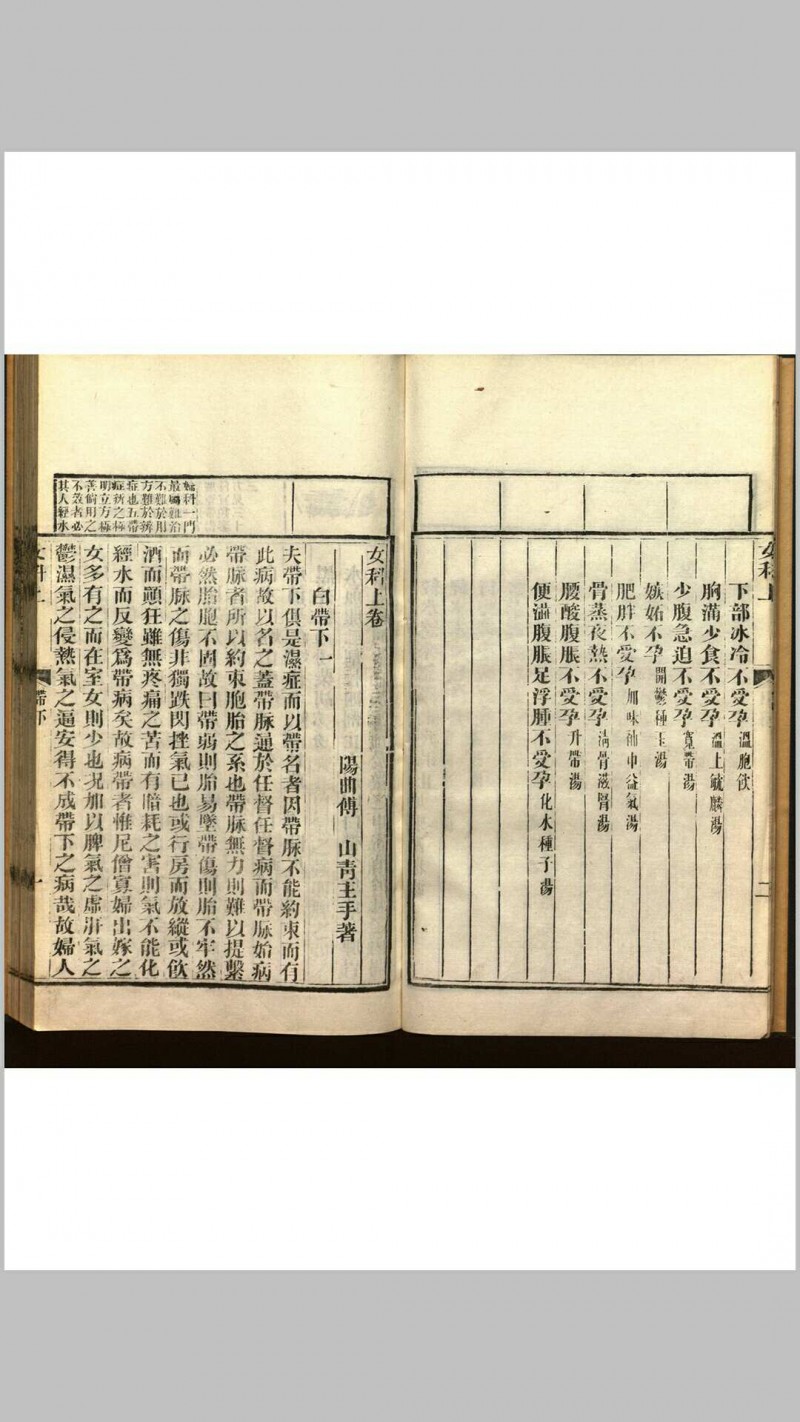 下部冰冷不受孕 溫胞飲
胸滿少食不受孕 溫土毓麟湯
少腹急迫不受孕 寬帶湯
嫉妬不孕 開鬱種玉湯
肥胖不受孕 加味補中益氣湯
骨蒸夜熱不受孕 淸骨滋腎湯
腰酸腹脹不受孕 升帶湯
便澁腹脹足浮腫不受孕 化水種子湯
女科上
二
婦科一門
最屬難治
不難於用
方難於辨
症也五帶
症辨之極
明立方極
善倘用之
不效者必
其人經水
女科上卷
陽曲傅 山靑主手著
白帶下一
夫帶下俱是濕症而以帶名者因帶脉不能約束而有
此病故以名之葢帶脉通於任督任督病而帶脉始病
帶脉者所以約束胞胎之系也帶脉無力則難以提繫
必然胎胞不固故曰帶弱則胎易墜帶傷則胎不牢然
而帶脉之傷非獨跌閃挫氣已也或行房而放縱或飮
酒而顚狂雖無疼痛之苦而有暗耗之害則氣不能化
經水而反變爲帶病矣故病帶者惟尼僧寡婦出嫁之
女多有之而在室女則少也况加以脾氣之虛肝氣之
鬱濕氣之侵熱氣之逼安得不成帶下之病哉故婦人
女科上
帶下
一